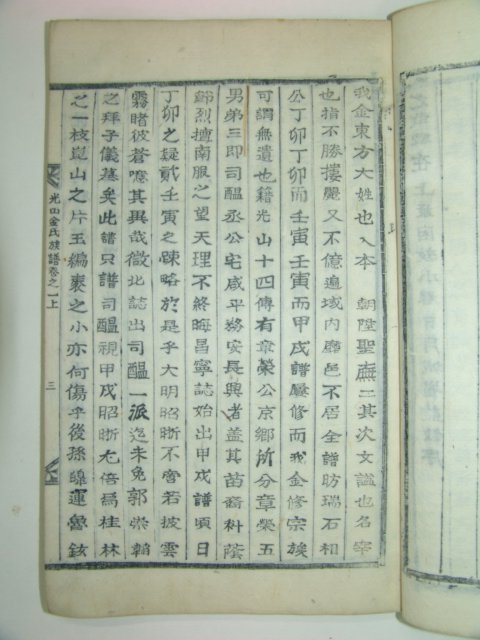 我金東方大姓也入本 朝陞聖廡二其次文謚也名宰
也指不勝摟麗又不億遍域内廳邑不居全譜昉瑞石和
公丁卯丁卯而壬寅壬寅而甲戌譜屢修而我金修宗族
可謂無遺也籍光山十四傳有章榮公京鄉所分章榮五
男弟三即司醞丞公宅咸平務安長興者盖其苗裔科蔭
節烈擅南服之望天理不終晦昌寧誌始出甲戌譜頃日
丁卯之疑貳壬寅之踈略於是乎大明昭晣不啻若披雲
霧睹彼蒼噫其異哉微北誌出司醞一派迄未免郭崇韜
之拜子儀墓矣此譜只譜司醞視甲戌昭晣尤倍爲桂林
之一枝崑山之片玉編袠之小亦何傷乎後孫 運 鉉
光山金氏族譜卷之一上
三